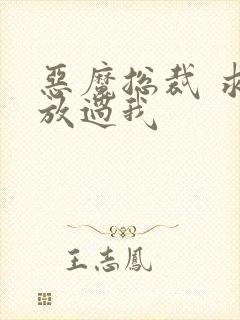 惡魔總裁 求
放過我
王志鳳